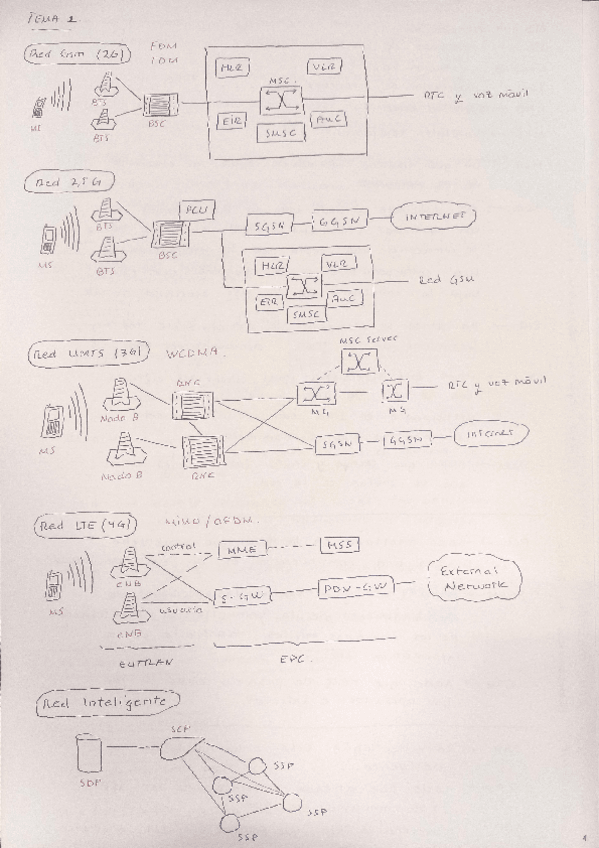 TEMA 1
Red GSM (2G)
FDM
TDM
HLR
VLR
MSC
EIR
AuC
SMSC
MS
BTS
BTS
BSC
RTC y voz móvil
Red 2,5G
PCU
MS
BTS
BTS
BSC
SGSN
GGSN
INTERNET
HLR
VLR
EIR
AuC
SMSC
Red GSM
Red UMTS (3G)
WCDMA.
MSC Server
RNC
MG
MG
RTC y voz móvil
MS
Nodo B
Nodo B
RNC
SGSN
GGSN
Internet
Red LTE (4G)
MIMO/OFDM.
control
MME
HSS
MS
eNB
eNB
usuario
S-GW
PDN-GW
External
Network
EPC.
Red Inteligente
SCP
SDP
SSP
SSP
SSP
SSP